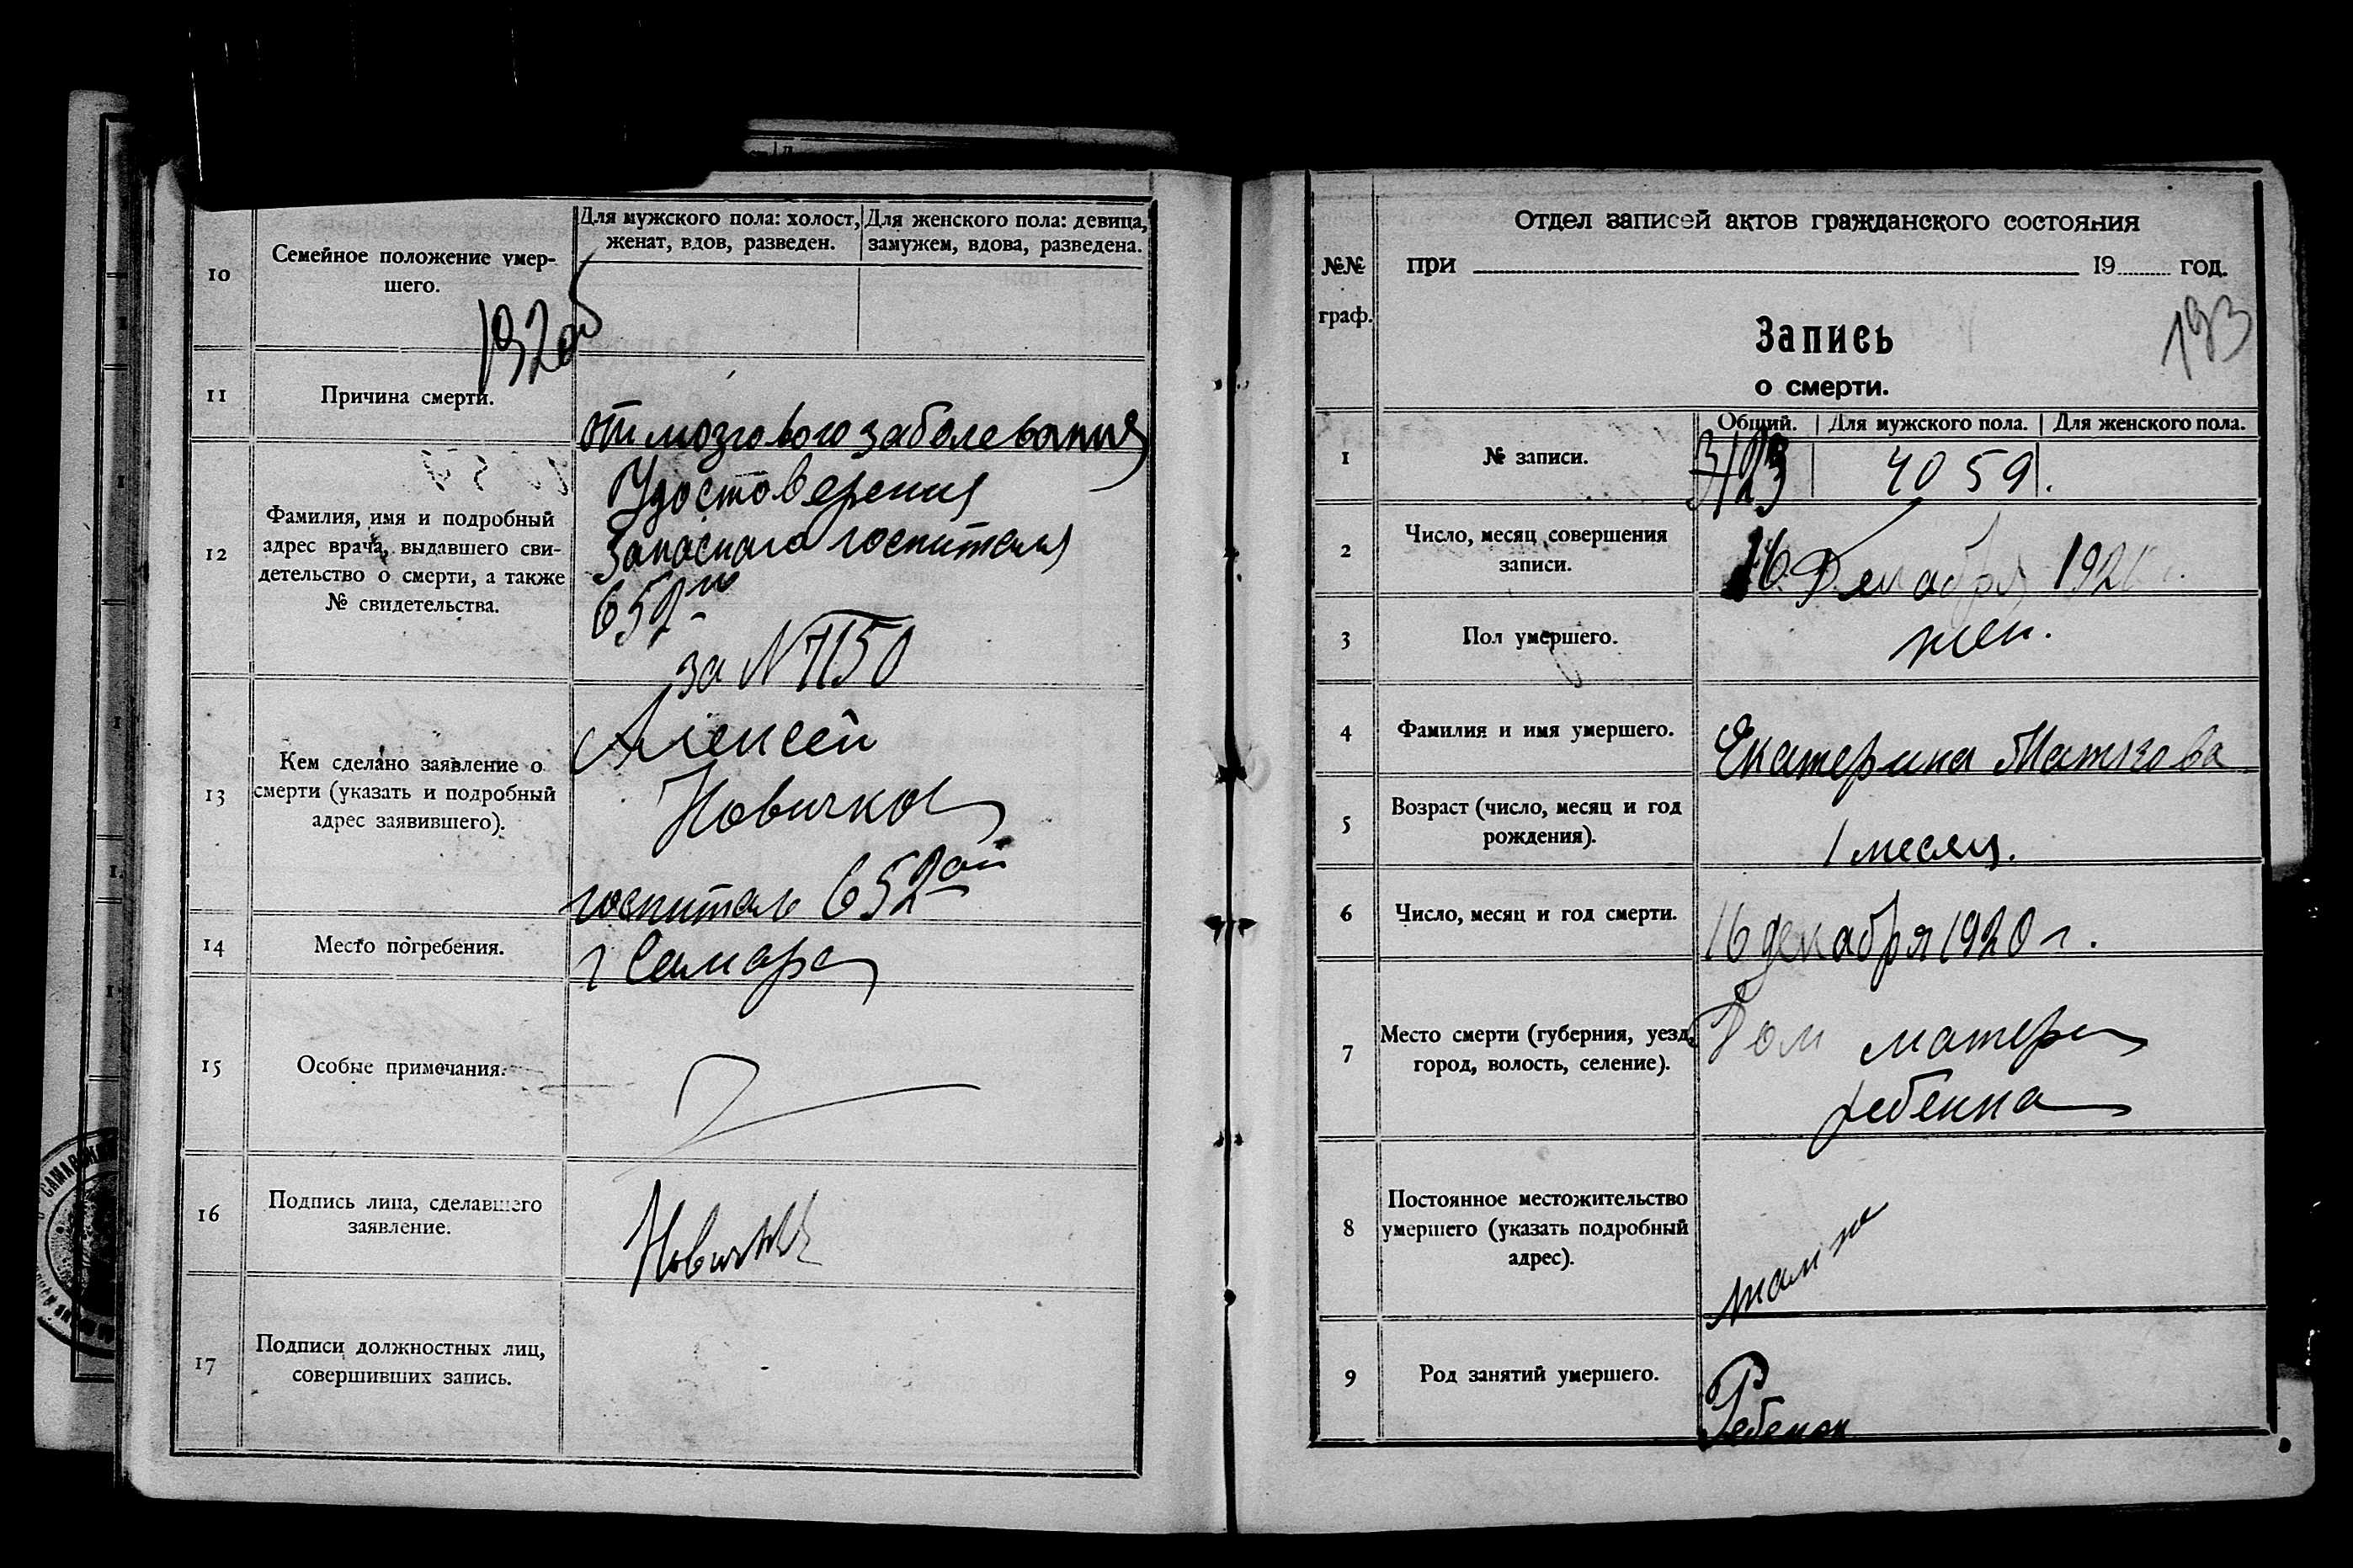 10
Семейное положение умер-
шего.
Для мужского пола: холост,
женат, вдов, разведен.
Для женского пола: девица,
замужем, вдова, разведена.
11
Причина смерти.
от мозгового заболевания
12
Фамилия, имя и подробный
адрес врача, выдавшего сви-
детельство о смерти, а также
№ свидетельства.
Удостоверения
Запасного госпиталя
652го
за N 7150
13
Кем сделано заявление о
смерти (указать и подробный
адрес заявившего).
Алексей
Новичков
госпиталь 652ой
14
Место погребения.
г Самара
15
Особые примечания.
16
Подпись лица, сделавшего
заявление.
Новичков
17
Подписи должностных лиц,
совершивших запись.
№№
граф.
Отдел записей актов гражданского состояния
при 19 год.
193
Запись
о смерти.
1
№ записи.
Общий.
Для мужского пола.
Для женского пола.
4059.
2
Число, месяц совершения
записи.
16 Декабря 192
3
Пол умершего.
жен.
4
Фамилия и имя умершего.
Екатерина
5
Возраст (число, месяц и год
рождения).
1 месяц.
6
Число, месяц и год смерти.
16 декабря 1920 г.
7
Место смерти (губерния, уезд,
город, волость, селение).
Дом матери
ребенка
8
Постоянное местожительство
умершего (указать подробный
адрес).
там же
9
Род занятий умершего.
Ребенок